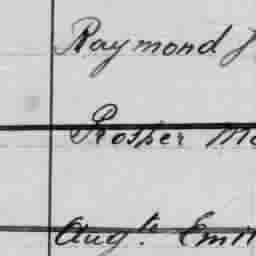 Raymond J
Prosper Ma
Augte. Emil